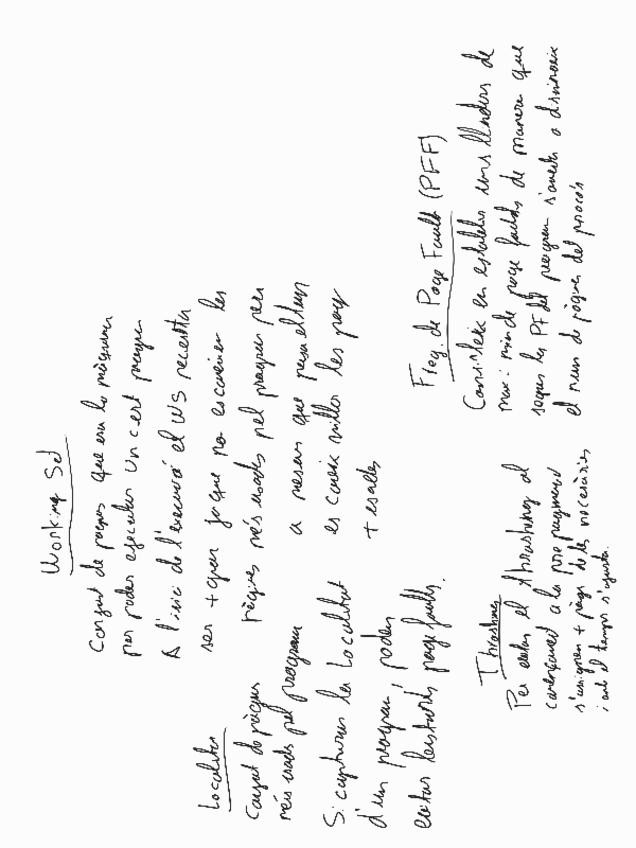 Working Set
Conjunt de pàgines que usa la màquina
per poder executar un cert program
A l'inici de l'execució el WS necessita
ser + gran ja que no es coneixen les
pàgines més usades pel program però
a mesura que passa el temps
es coneix millor les pag
+ usades
Localitat
Conjunt de pàgines
més usades pel program
Si capturem la Localitat
d'un program, podem
evitar bastants page faults.
Thrashing
Per evitar el thrashing al
començament a la pre paginació
s'assignen + pàgs de les necessàries
i amb el temps s'ajusta.
Freq. de Page Fault (PFF)
Consisteix en establir uns llindars de
max i min de page faults de manera que
segons los PF del program s'aumenta o disminueix
el num de pàgines del procés